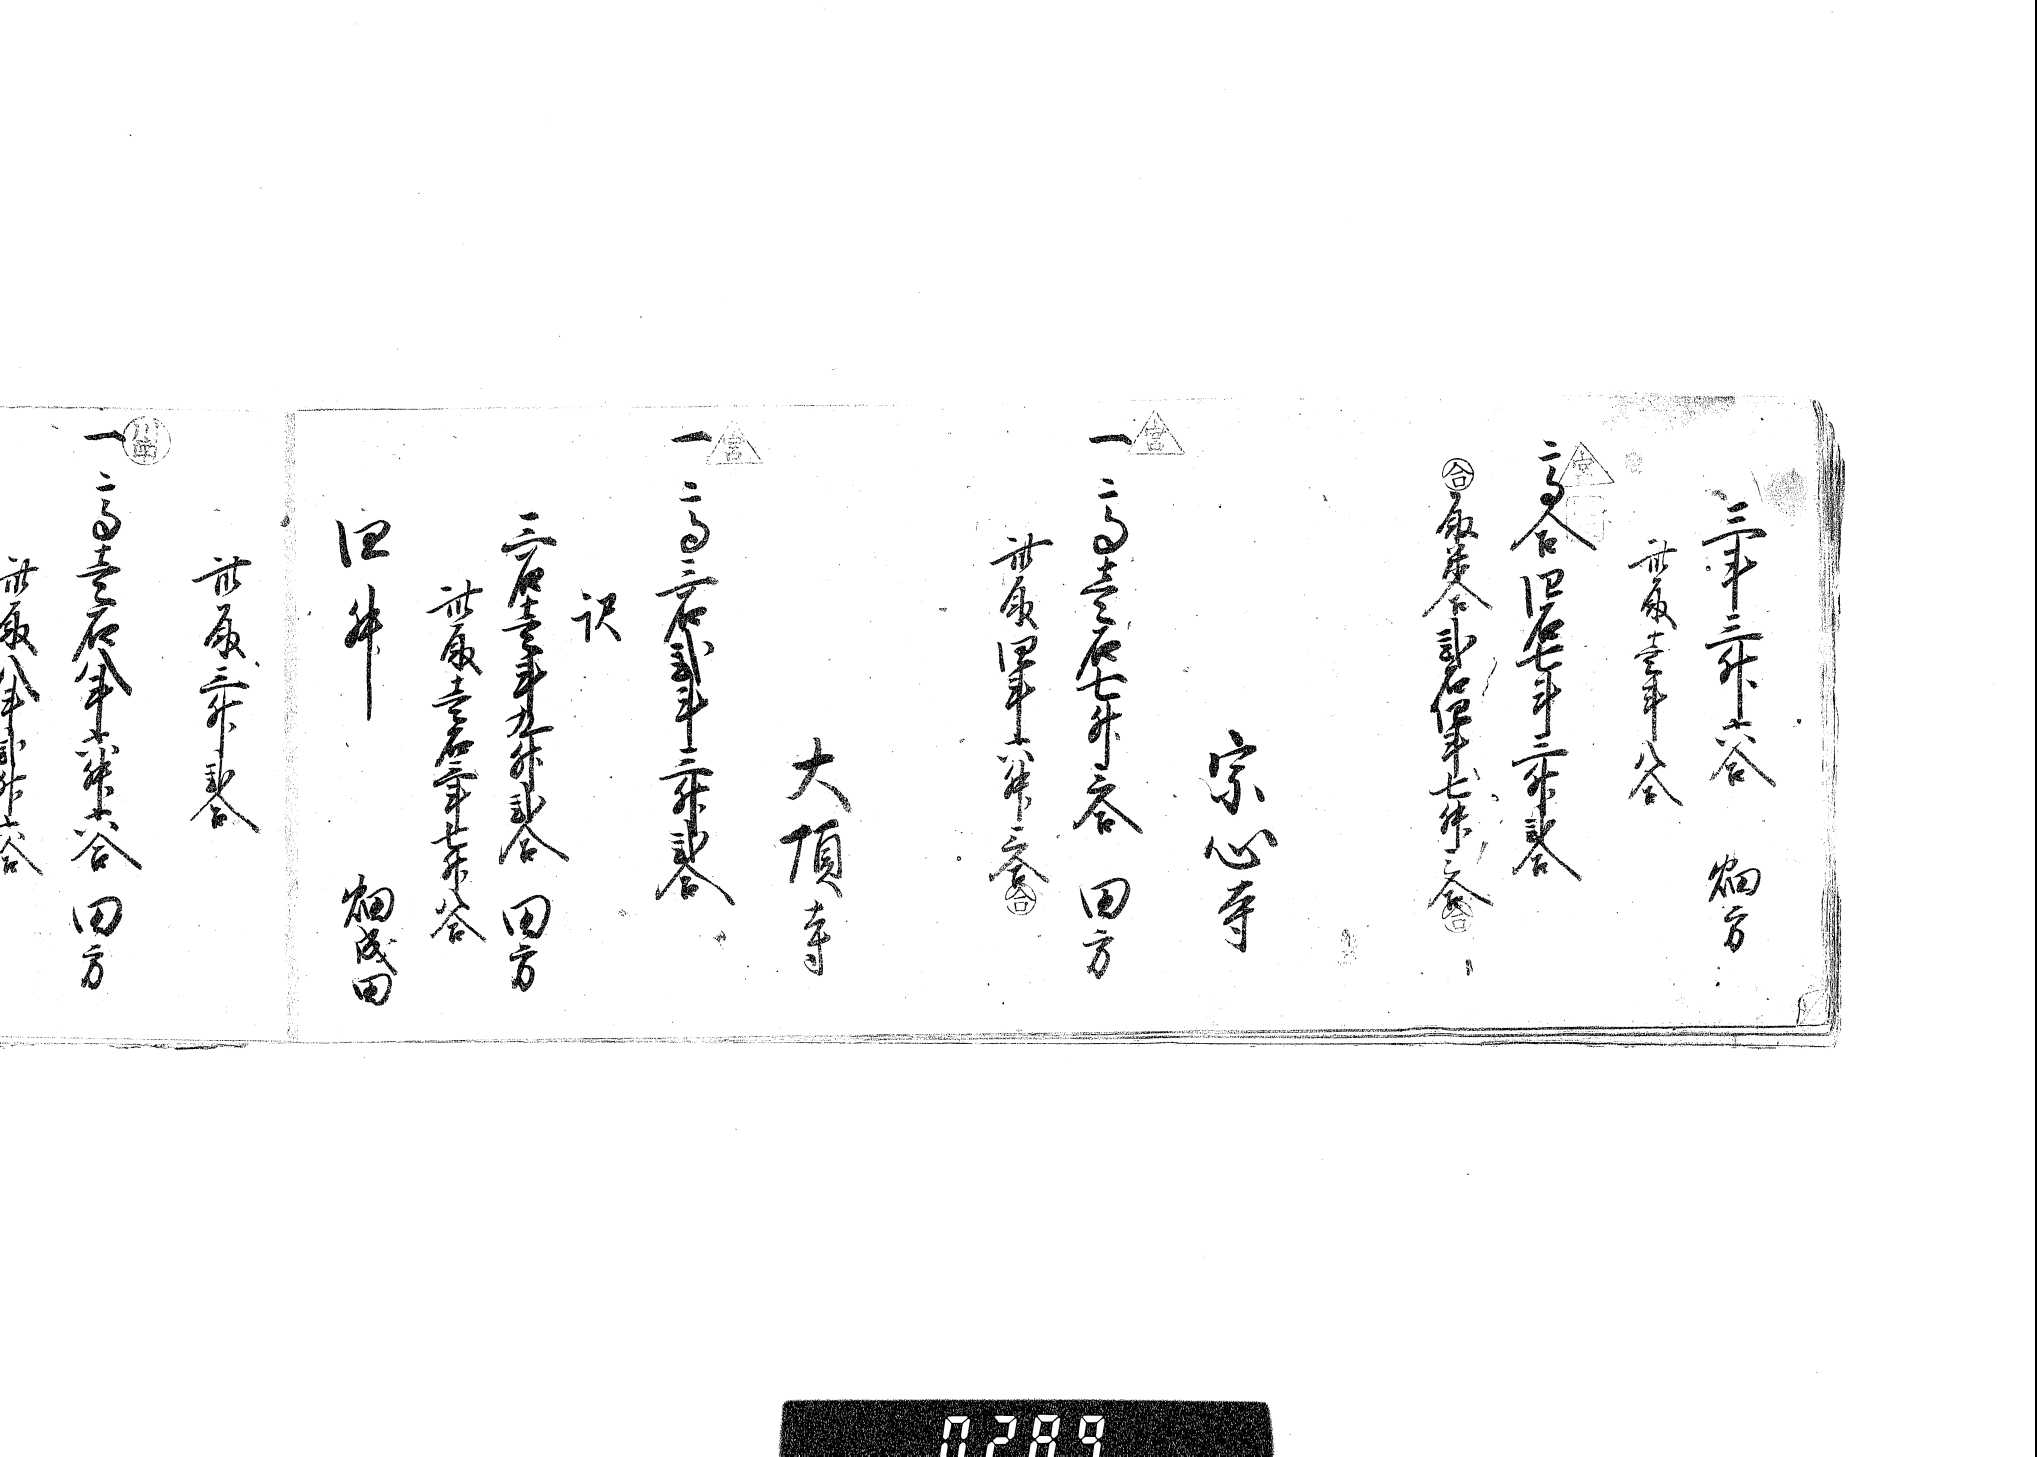 三斗三升六合　畑方
此取壱斗八合
高合四石七斗三升弐合
合　取米合弐石四斗七升三合　合
宗心寺
一　高壱石七升三合　田方
此取四斗六升三合　合
大頂寺
一　高三石弐斗三升弐合
訳
三石壱斗九升弐合　田方
此取壱石三斗七升八合
四升　畑成田
此取三升弐合
一　高壱石八斗六升六合　田方
此取八斗弐升六合
0289